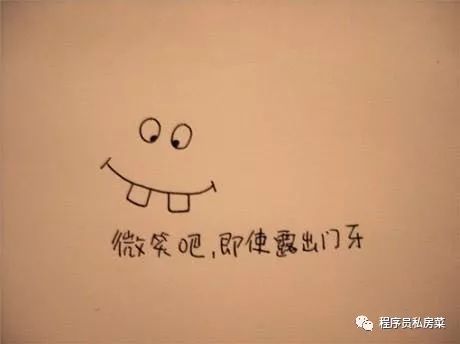 微笑吧,即使露出门牙
程序员私房菜